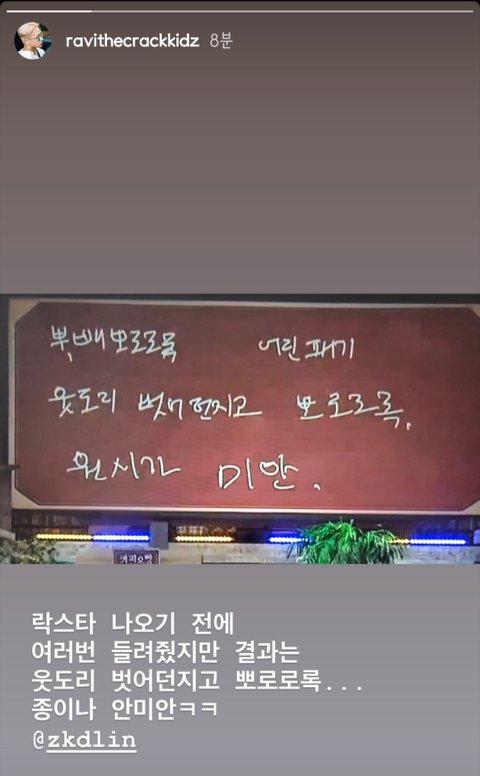 ravithecrackkidz 8분
뽀로로록 어린 패기
웃도리 벗어던지고 뽀로로록.
원시가 미안.
락스타 나오기 전에
여러번 들려줬지만 결과는
웃도리 벗어던지고 뽀로로록...
종이나 안미안ㅋㅋ
@zkdlin